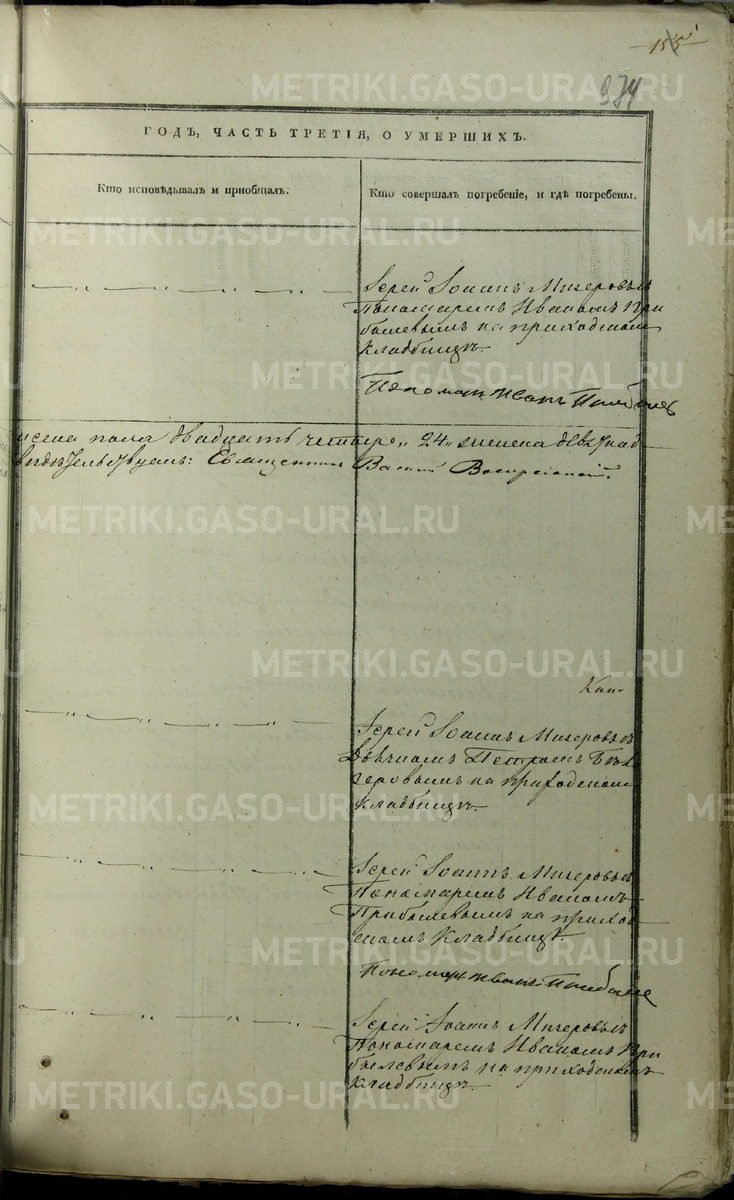 155
974
ГОДЪ, ЧАСТЬ ТРЕТІЯ, О УМЕРШИХЪ.
Кто исповѣдывалъ и приобщалъ.
Кто совершалъ погребеніе, и гдѣ погребены.
Іерей Іоаннъ Мичеровъ съ
Пономаремъ Иваномъ При
былевымъ на приходскомъ
кладбищѣ.
Пономарь Иванъ Прибылев
пола двадцать четыре „24„ женска девят
Священникъ Василій Воскресенскій.
Іерей Іоаннъ Мичеровъ съ
Дьячкомъ Петромъ
на приходскомъ
кладбищѣ.
Іерей Іоаннъ Мичеровъ съ
Пономаремъ Иваномъ
Прибылевымъ на приход
скомъ кладбищѣ.
Пономарь Иванъ Прибылев
Іерей Іоаннъ Мичеровъ съ
Пономаремъ Иваномъ При
былевымъ на приходскомъ
кладбищѣ.
METRIKI.GASO-URAL.RU